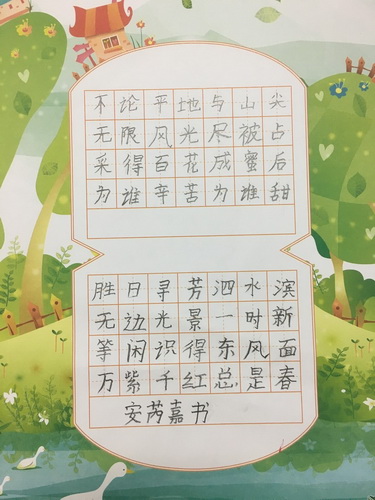 不论平地与山尖
无限风光尽被占
采得百花成蜜后
为谁辛苦为谁甜
胜日寻芳泗水滨
无边光景一时新
等闲识得东风面
万紫千红总是春
安芮嘉书